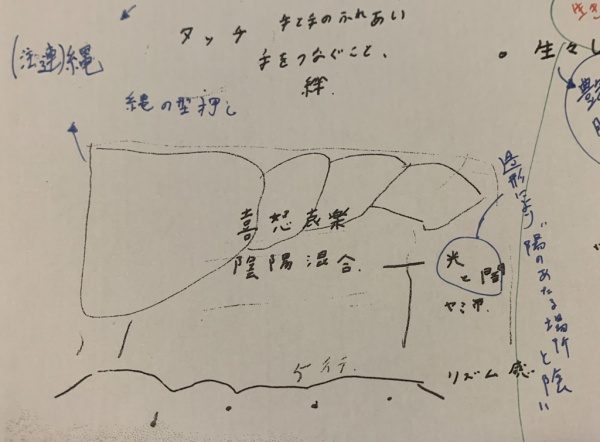 タッチ 手と手のふれあい
手をつなぐこと、
絆.
(注連)縄
縄の型押し
・生々し
喜怒哀楽
陰陽混合.
光と闇
リズム感
造形により“陽のあたる場所と陰”